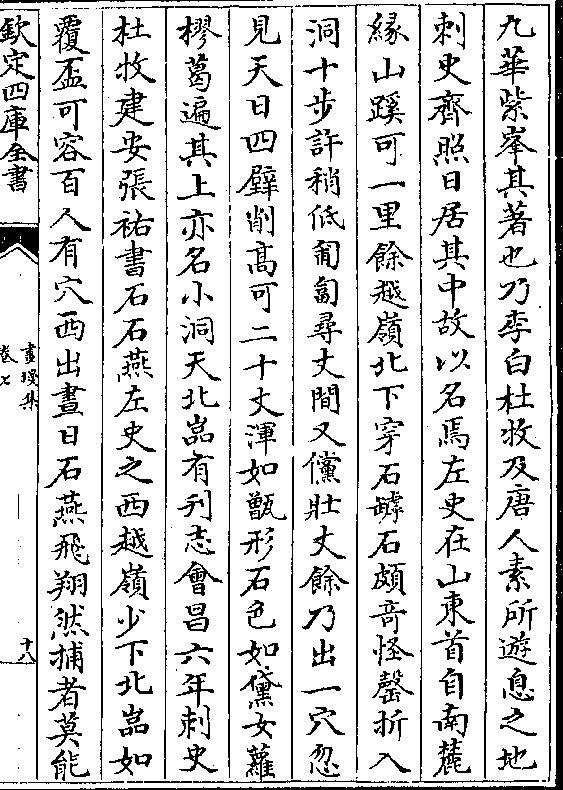 九華紫峯其著也乃李白杜牧及唐人素所遊息之地
刺史齊照日居其中故以名焉左史在山東首自南麓
緣山蹊可一里餘越嶺北下穿石罅石頗奇怪罄折入
洞十步許稍低匍匐尋丈間又儻壯丈餘乃出一穴忽
見天日四壁削高可二十丈渾如甑形石色如黛女蘿
樛葛遍其上亦名小洞天北嵓有刋志會昌六年刺史
杜牧建安張祜書石石燕左史之西越嶺少下北嵓如
覆盃可容百人有穴西出晝日石燕飛翔然捕者莫能
欽定四庫全書
畫墁集
卷七
十八